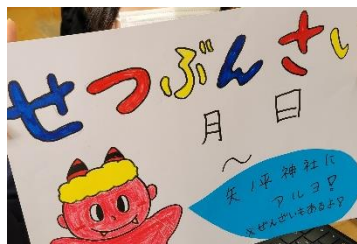 せつぶんさい
月 日
〜
矢ノ平神社に
アルヨ!
※ぜんざいもあるよ♪